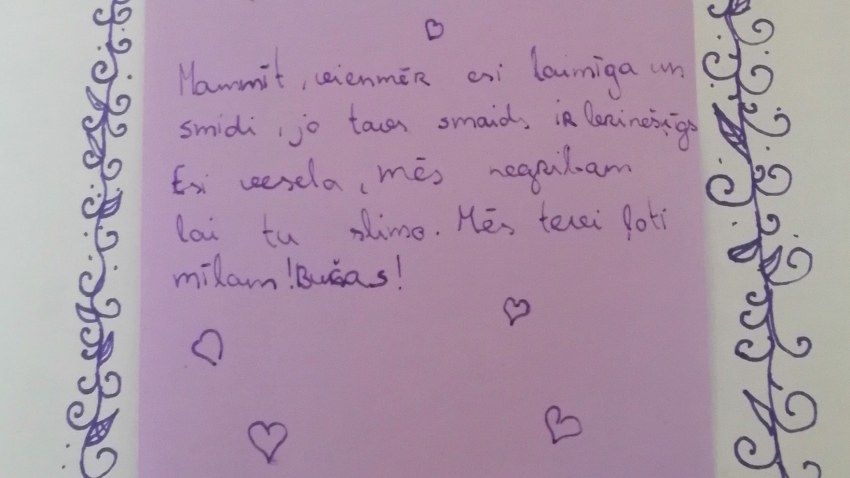 Mammīt, vienmēr esi laimīga un
smidi, jo tavs smaids ir lerinešīgs
Esi vesela, mēs negribam
lai tu slimo. Mēs tevi ļoti
mīlam! Bučas!